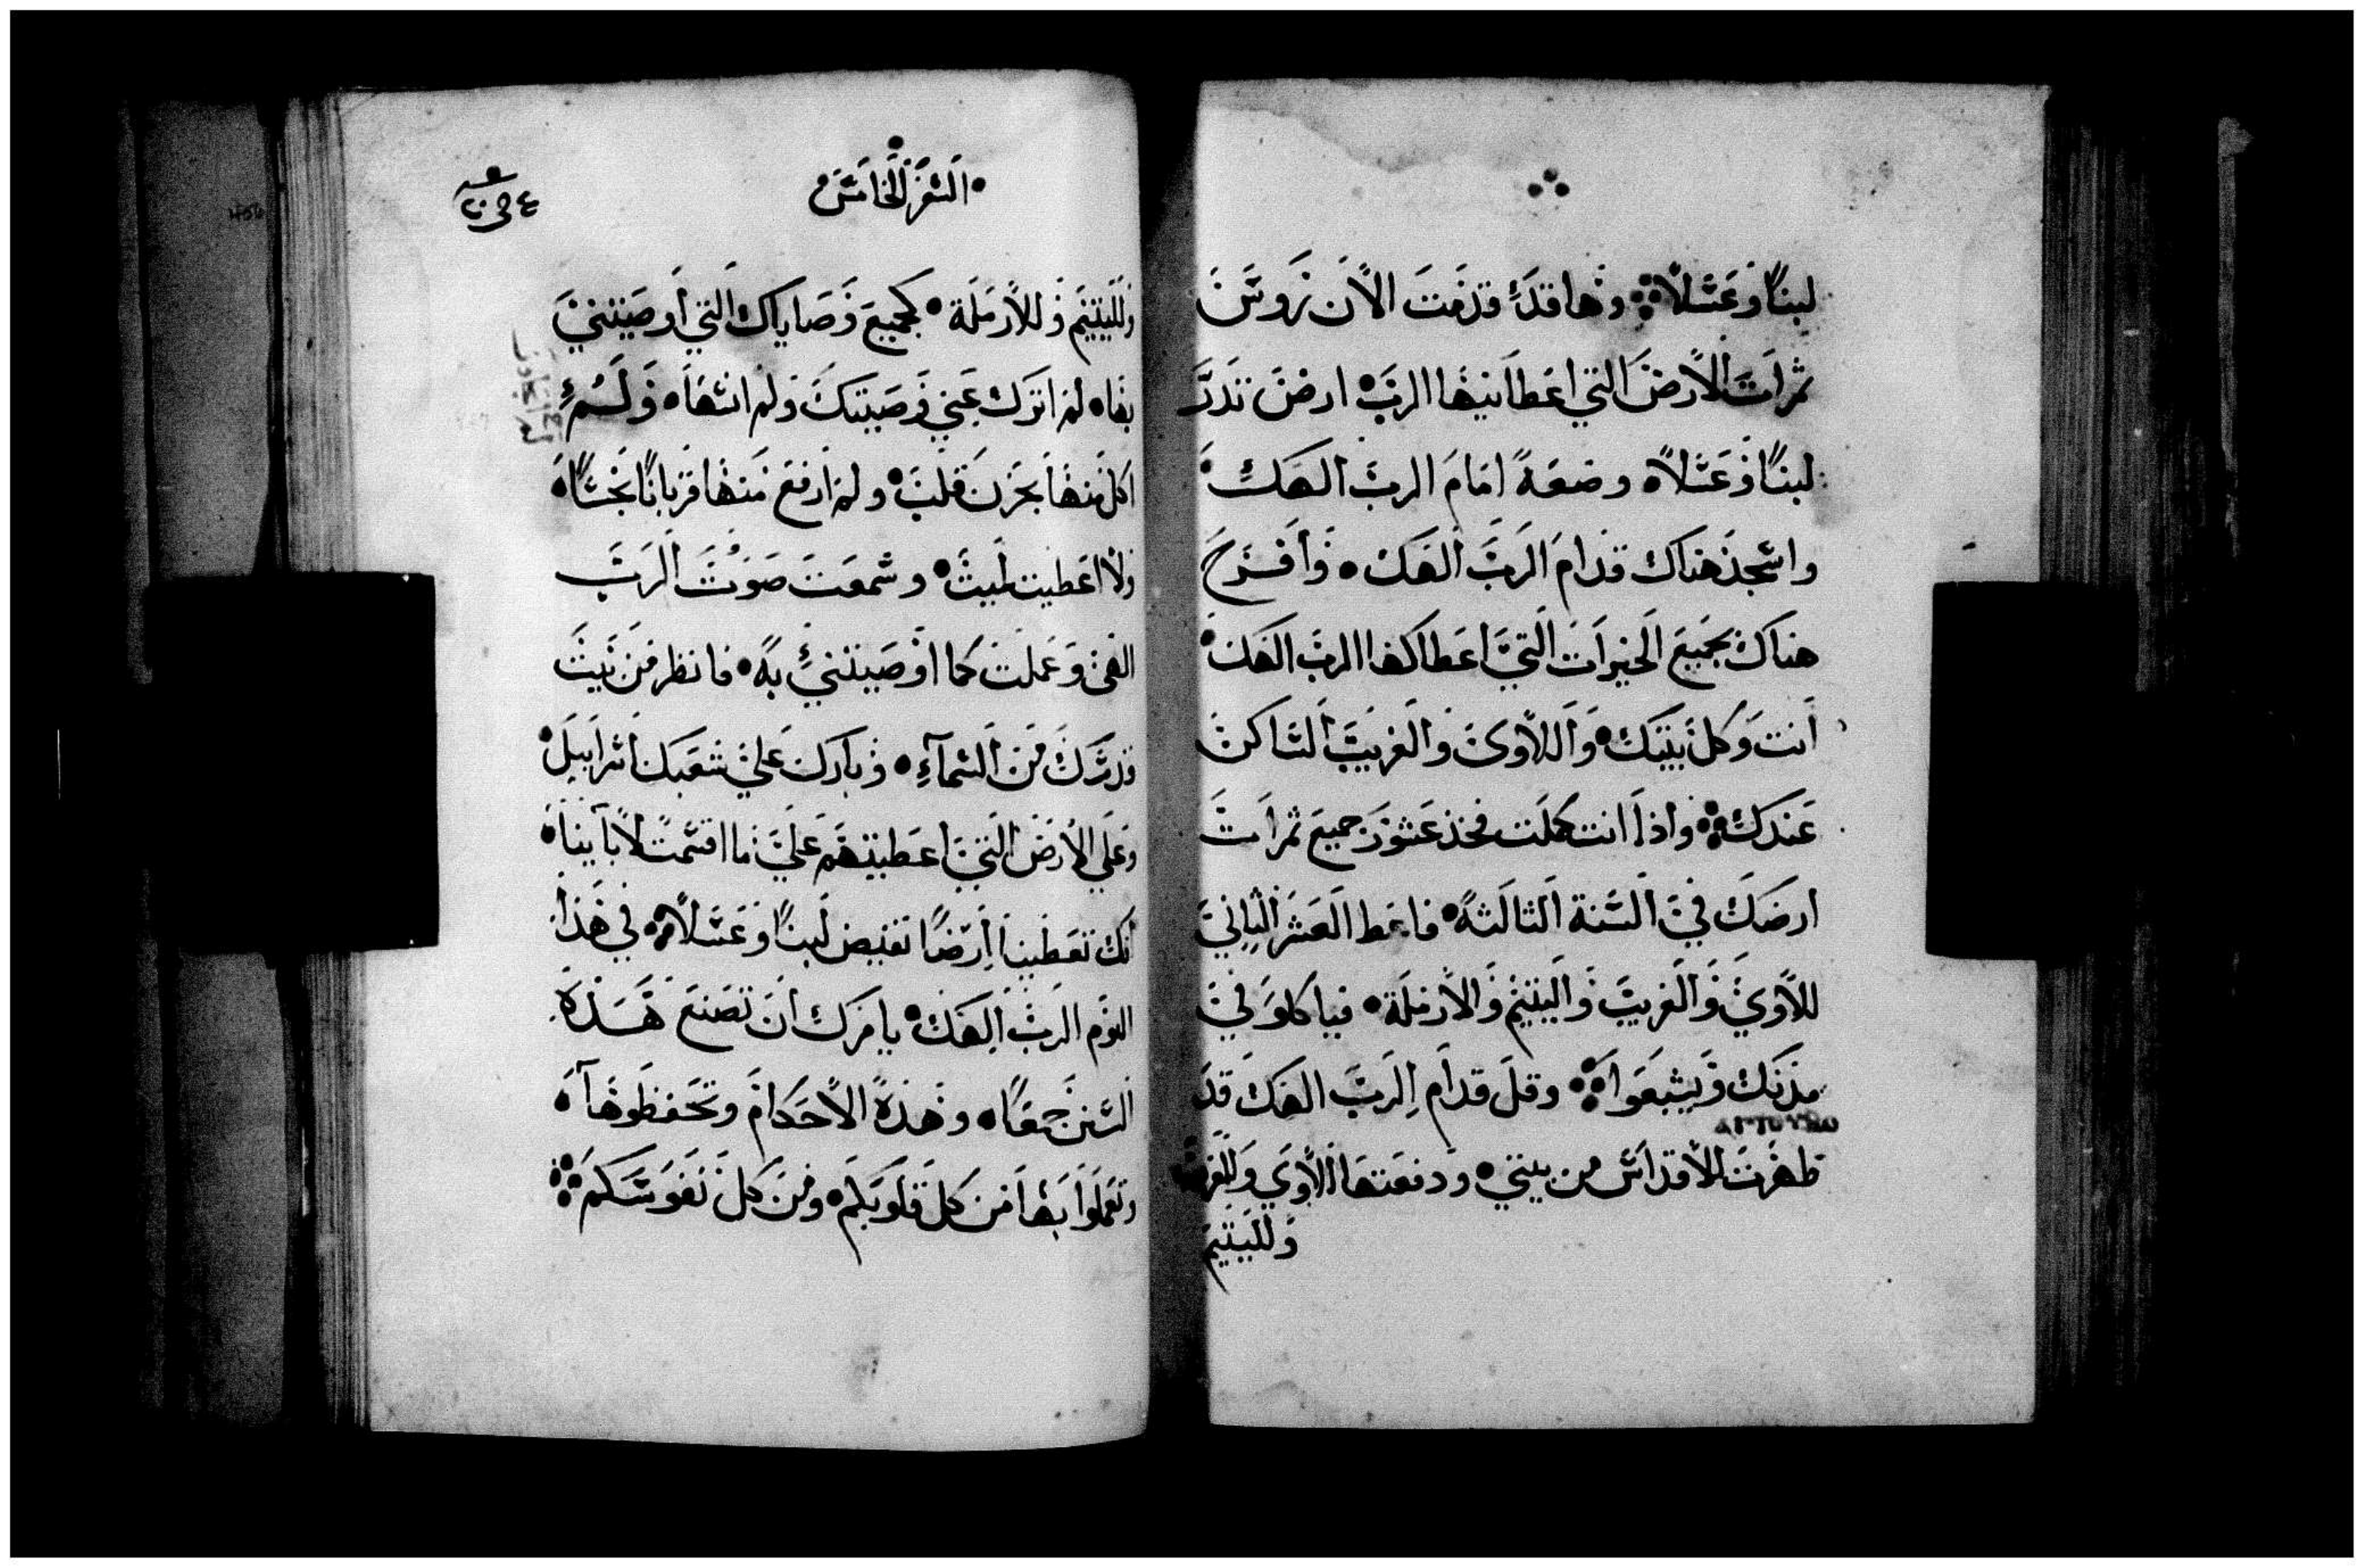 لبنًا وعسلاً ۞ وها قد قدمت الان روس
ثمرات الأرض التي اعطانيها الرب ۰ ارض تدر
لبنًا وعسلاً ۰ وضعهُ امام الرب الهك ۰
واسجد هناك قدام الرب الهك ۰ وأفرح
هناك بجميع الخيرات التي اعطاكها الرب الهك ۰
أنت وكل بيتك ۰ واللاوى والغريب الساكن
عندك ۞ واذا انت كملت فخذ عشور جميع ثمرات
ارضك في السنة الثالثة ۰ فاعط العشر الثاني
للاوي والغريب واليتيم والأرملة ۰ فياكلو في
مدنك ويشبعوا ۞ وقل قدام الرب الهك قد
طهرت الأقداس من بيتي ۰ ودفعتها للاوي وللغريب
ولليتيم
۰ السفر الخامس ۰
ولليتيم وللأرملة ۰ كجميع وصاياك التي أوصيتني
بها ۰ لم اترك عني وصيتك ولم انسها ۰ ولم
اكل منها بحزن قلب ۰ ولم ارفع منها قربانًا نجسًا ۰
ولا اعطيت لميت ۰ وسمعت صوت الرب
الهى وعملت كما اوصيتني به ۰ فانظر من بيت
قدسك من السماء ۰ وبارك علي شعبك اسراييل ۰
وعلي الأرض التي اعطيتهم علي ما اقسمت لأباينا ۰
أنك تعطينا ارضًا تفيض لبنًا وعسلاً ۞ في هذا
اليوم الرب الهك ۰ يامرك ان تصنع هذه
السنن جمعًا ۰ وهذه الأحكام وتحفظوها ۰
وتعملوا بها من كل قلوبكم ۰ ومن كل نفوسكم ۞